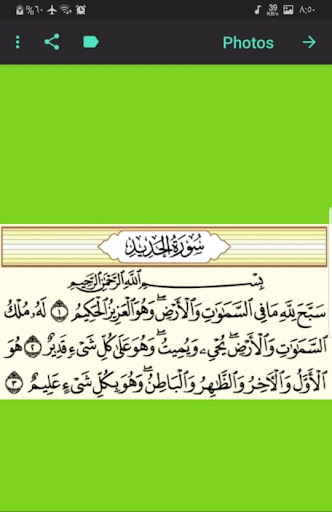 %٦٠
39
KB/s
٨:٥٠
Photos
سُورَةُ الحَدِيدِ
بِسْمِ اللَّهِ الرَّحْمَٰنِ الرَّحِيمِ
سَبَّحَ لِلَّهِ مَا فِي السَّمَٰوَٰتِ وَالْأَرْضِ ۖ وَهُوَ الْعَزِيزُ الْحَكِيمُ ١ لَهُ مُلْكُ
السَّمَٰوَٰتِ وَالْأَرْضِ ۖ يُحْيِۦ وَيُمِيتُ ۖ وَهُوَ عَلَىٰ كُلِّ شَيْءٍ قَدِيرٌ ٢ هُوَ
الْأَوَّلُ وَالْآخِرُ وَالظَّٰهِرُ وَالْبَاطِنُ ۖ وَهُوَ بِكُلِّ شَيْءٍ عَلِيمٌ ٣